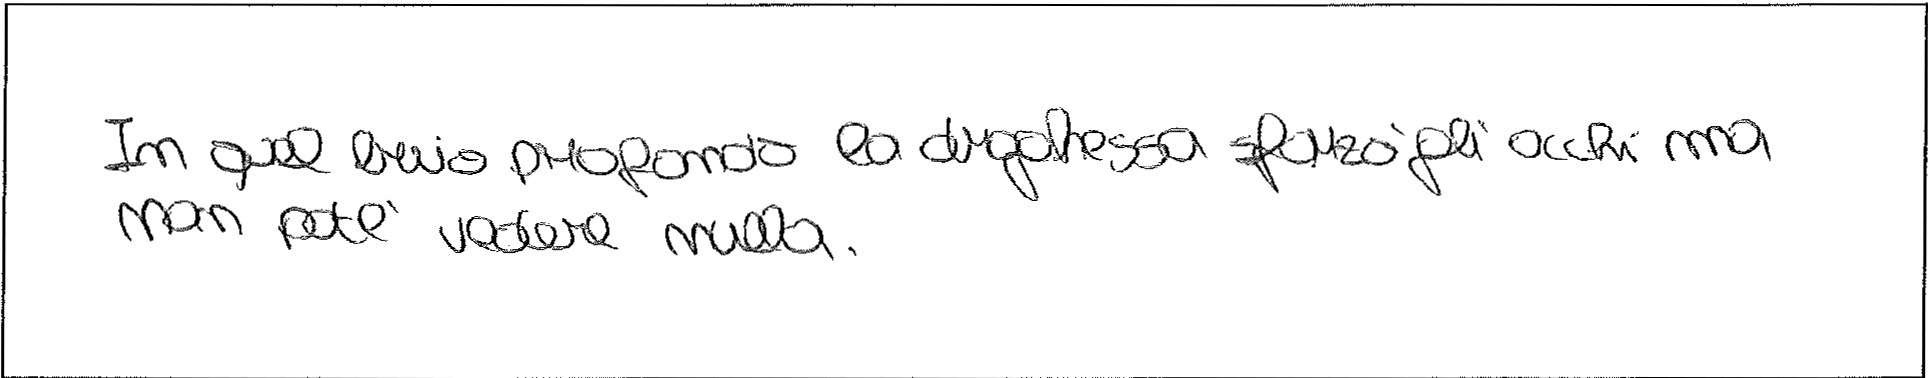 In quel buio profondo la dragohessa sforzò gli occhi ma
non poté vedere nulla.